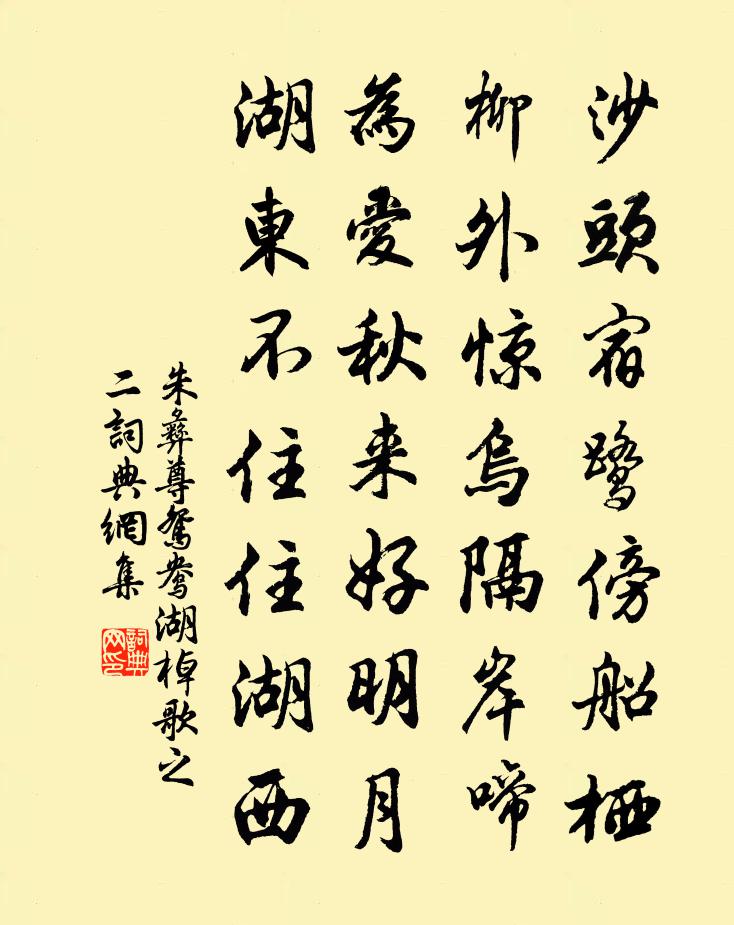 沙頭宿鷺傍船栖
柳外惊烏隔岸啼
為愛秋来好明月
湖東不住住湖西
朱彝尊鴛鴦湖棹歌之
二詞典網集
詞典网印